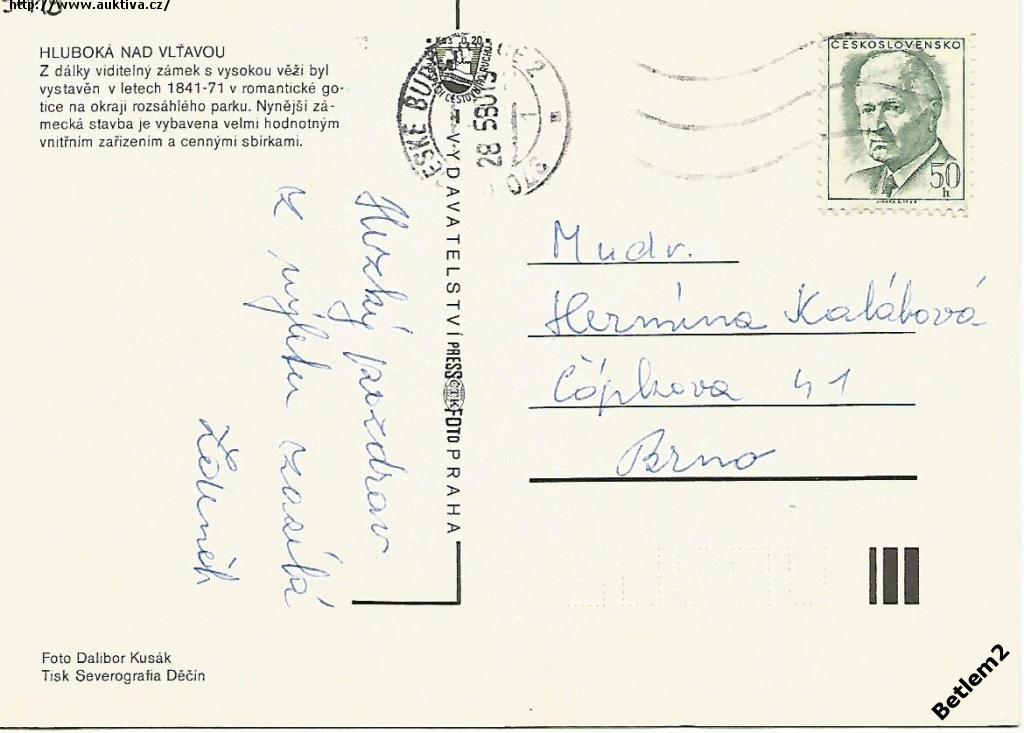 http://www.auktiva.cz/
HLUBOKÁ NAD VLTAVOU
Z dálky viditelný zámek s vysokou věží byl
vystavěn v letech 1841-71 v romantické go-
tice na okraji rozsáhlého parku. Nynější zá-
mecká stavba je vybavena velmi hodnotným
vnitřním zařízením a cennými sbírkami.
Kčs 0,20
ČESKÉ BUDĚJOVICE 2
370
ČESKOSLOVENSKO
50
h
VYDAVATELSTVÍ PRESSFOTO PRAHA
ČTK
Hezký pozdrav
z výletu zasílá
Zdeněk
Mudr.
Hermína Kalábová
Čápkova 41
Brno
Foto Dalibor Kusák
Tisk Severografia Děčín
Betlem2